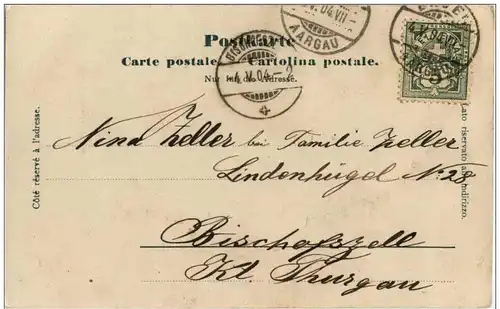 Postkarte
Carte postale. Cartolina postale.
Nur für die Adresse.
Côté réservé à l'adresse.
Lato riservato all'indirizzo.
V. 04. VII
AARGAU
BISCHOFSZELL
4. V. 04.
5
Nina Zeller bei Familie Zeller
Lindenhügel No 28
Bischofszell
Kt. Thurgau